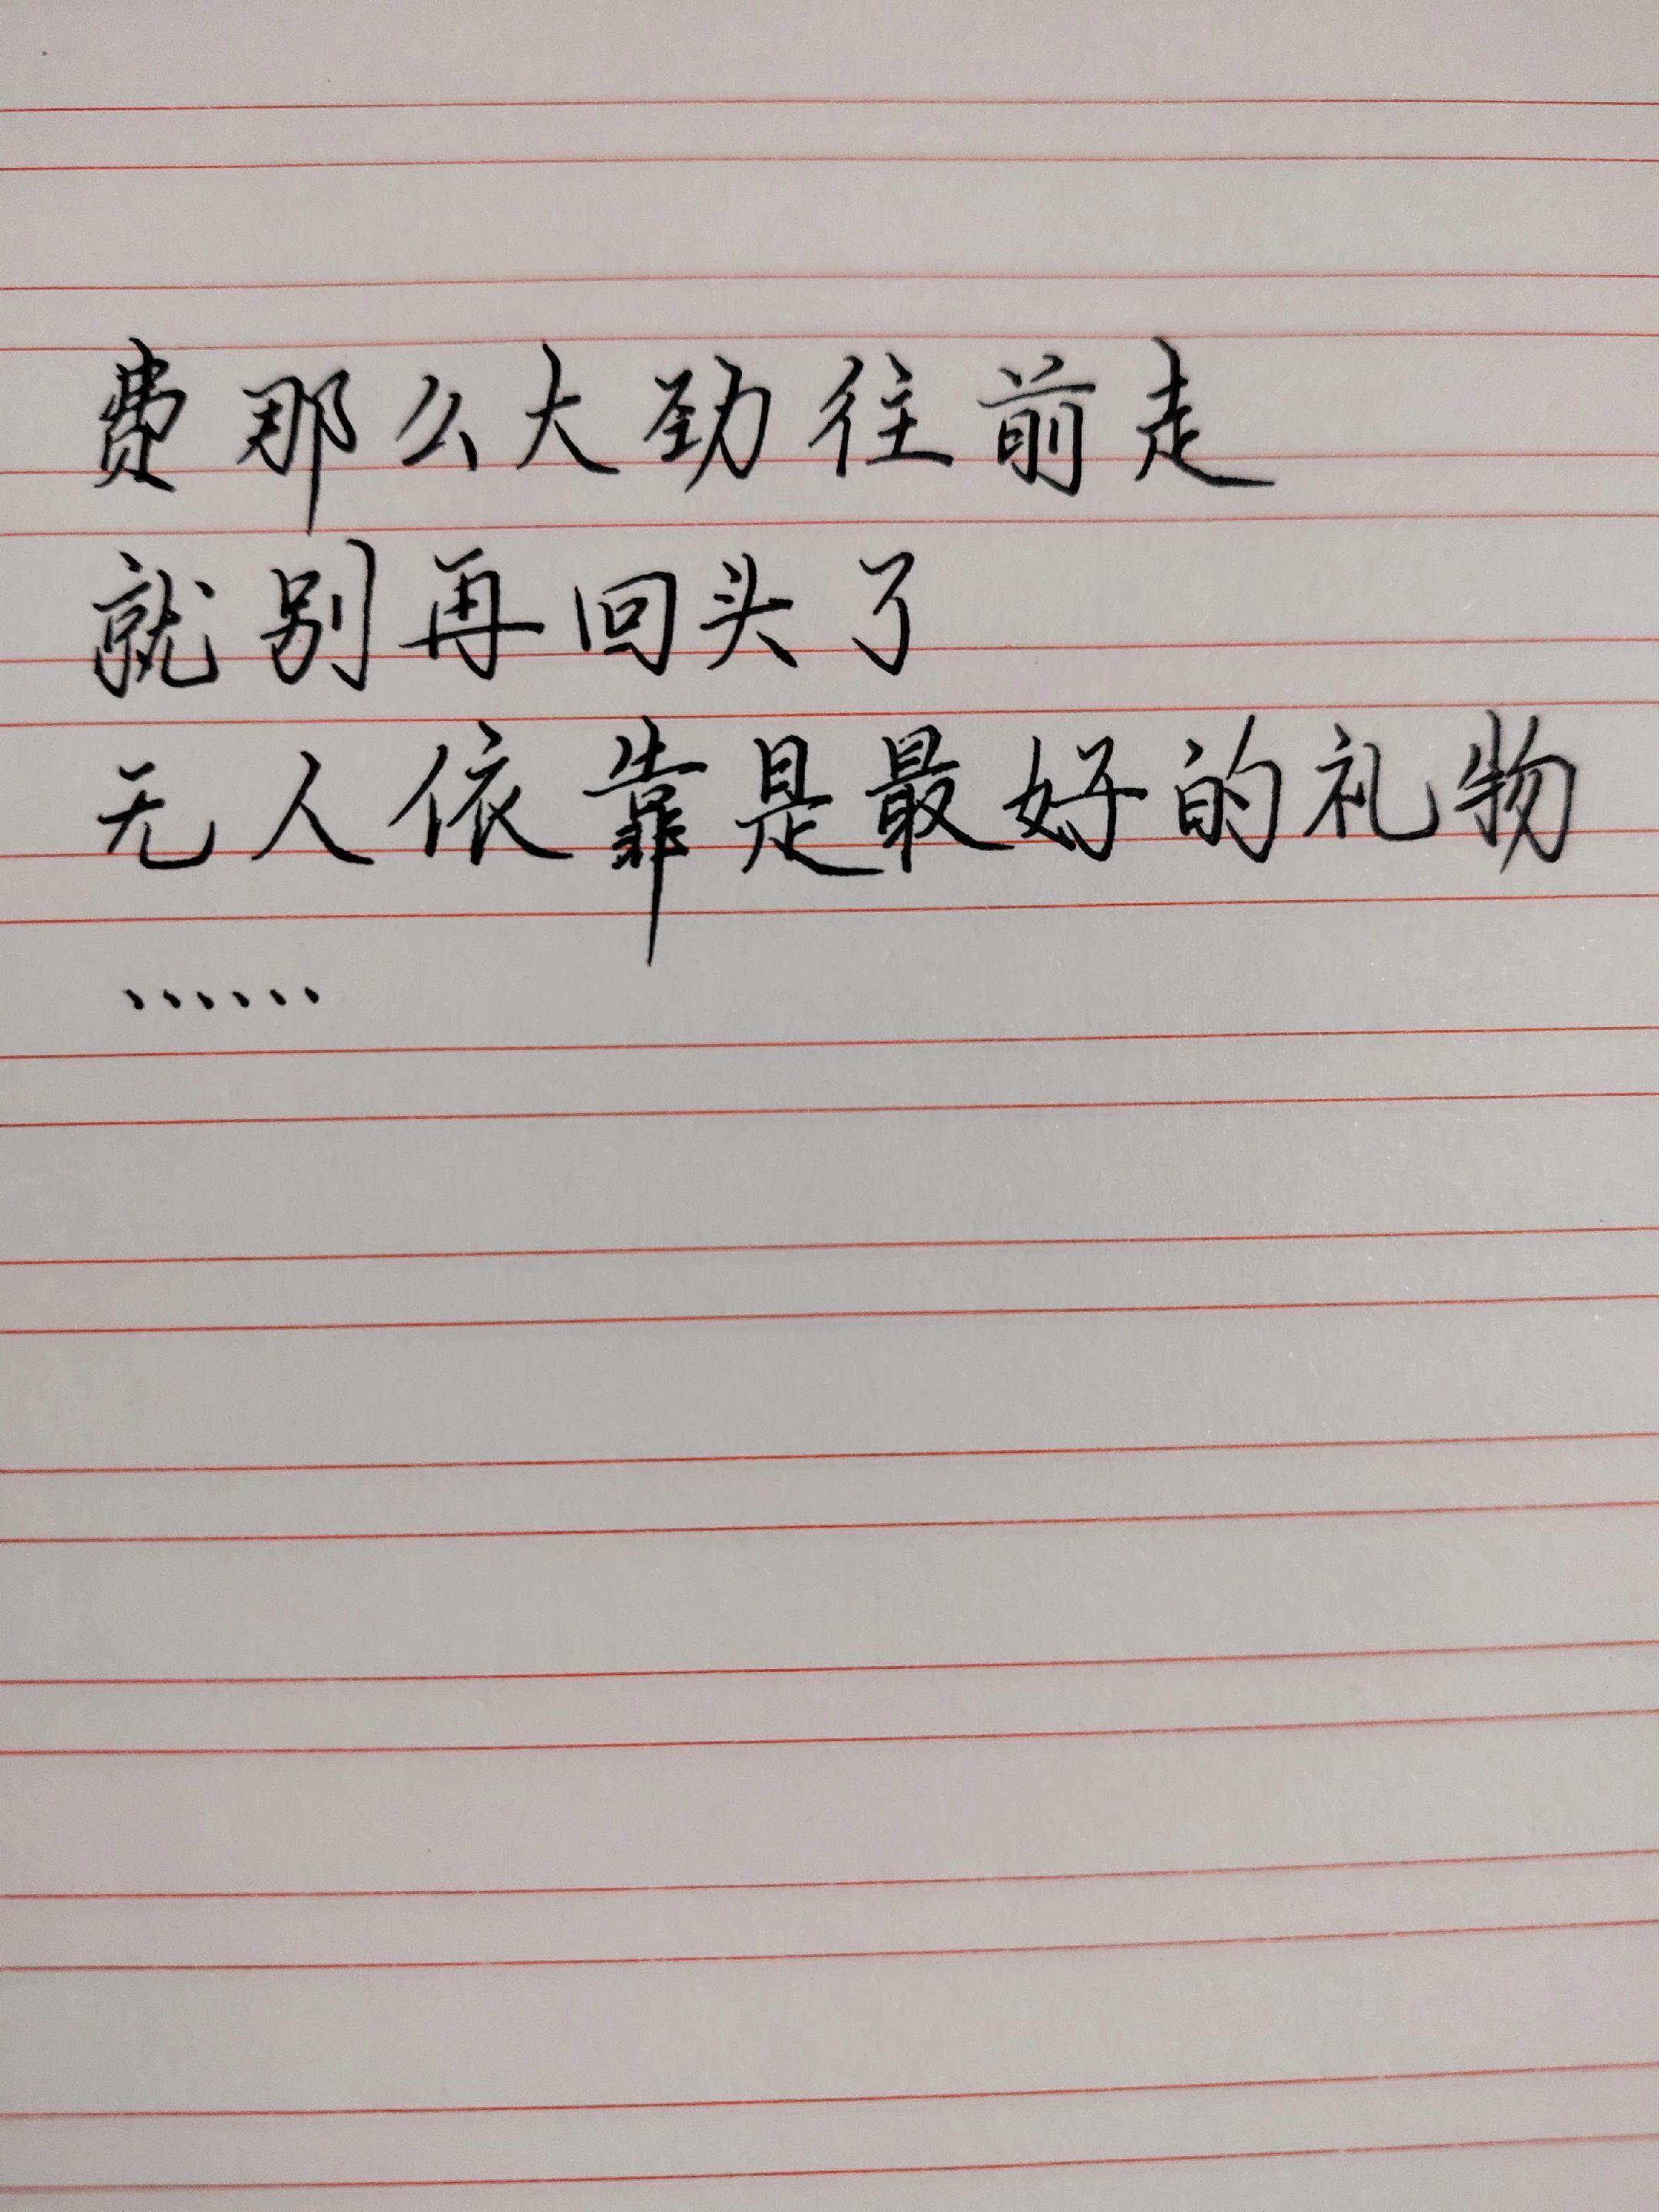 费那么大劲往前走
就别再回头了
无人依靠是最好的礼物
……